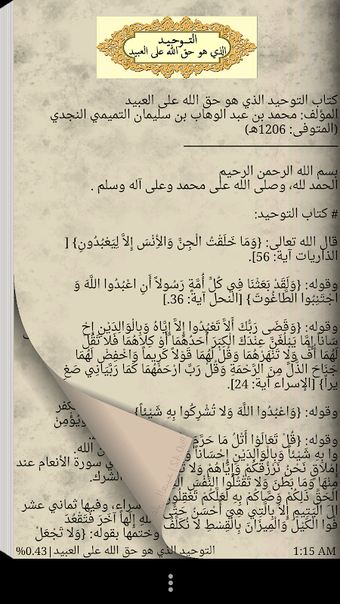 التـوحيـد
الذي هو حق الله على العبيد
كتاب التوحيد الذي هو حق الله على العبيد
المؤلف: محمد بن عبد الوهاب بن سليمان التميمي النجدي
(المتوفى: 1206هـ)
بسم الله الرحمن الرحيم
الحمد لله، وصلى الله على محمد وعلى آله وسلم .
# كتاب التوحيد:
قال الله تعالى: {وَمَا خَلَقْتُ الْجِنَّ وَالأِنْسَ إِلاَّ لِيَعْبُدُونِ} [
الذاريات آية: 56].
وقوله: {وَلَقَدْ بَعَثْنَا فِي كُلِّ أُمَّةٍ رَسُولاً أَنِ اعْبُدُوا اللَّهَ وَ
اجْتَنِبُوا الطَّاغُوتَ} [النحل آية: 36.]
وقوله: {وَقَضَى رَبُّكَ أَلاَّ تَعْبُدُوا إِلاَّ إِيَّاهُ وَبِالْوَالِدَيْنِ إِحْ
سَاناً إِمَّا يَبْلُغَنَّ عِنْدَكَ الْكِبَرَ أَحَدُهُمَا أَوْ كِلاهُمَا فَلا تَقُلْ
لَهُمَا أُفٍّ وَلا تَنْهَرْهُمَا وَقُلْ لَهُمَا قَوْلاً كَرِيماً وَاخْفِضْ لَهُمَا
جَنَاحَ الذُّلِّ مِنَ الرَّحْمَةِ وَقُلْ رَبِّ ارْحَمْهُمَا كَمَا رَبَّيَانِي صَغِ
يراً} [الإسراء آية: 24].
وقوله: {وَاعْبُدُوا اللَّهَ وَلا تُشْرِكُوا بِهِ شَيْئاً}
وقوله: {قُلْ تَعَالَوْا أَتْلُ مَا حَرَّمَ
وا بِهِ شَيْئاً وَبِالْوَالِدَيْنِ إِحْسَاناً
إِمْلاقٍ نَحْنُ نَرْزُقُكُمْ وَإِيَّاهُمْ وَلا
مِنْهَا وَمَا بَطَنَ وَلا تَقْتُلُوا النَّفْسَ
الْحَقِّ ذَلِكُمْ وَصَّاكُمْ بِهِ لَعَلَّكُمْ تَعْقِلُونَ
الَ الْيَتِيمِ إِلاَّ بِالَّتِي هِيَ أَحْسَنُ
فُوا الْكَيْلَ وَالْمِيزَانَ بِالْقِسْطِ لا نُكَلِّفُ
سورة الأنعام عند
الشرك.
سراء، وفيها ثماني عشر
إِلَهاً آخَرَ فَتَقْعُدَ
وختمها بقوله: {وَلا تَجْعَلْ
%0.43|التوحيد الذي هو حق الله على العبيد
1:15 AM